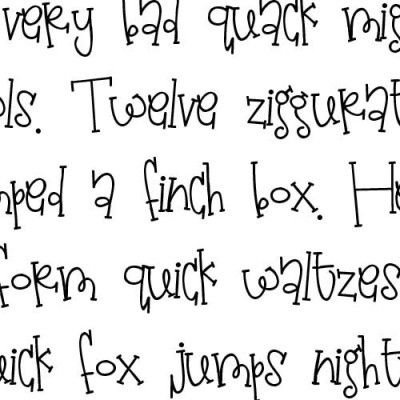 very bad quack mig
ols. Twelve ziggurat
mped a finch box. He
form quick waltzes
uick fox jumps night